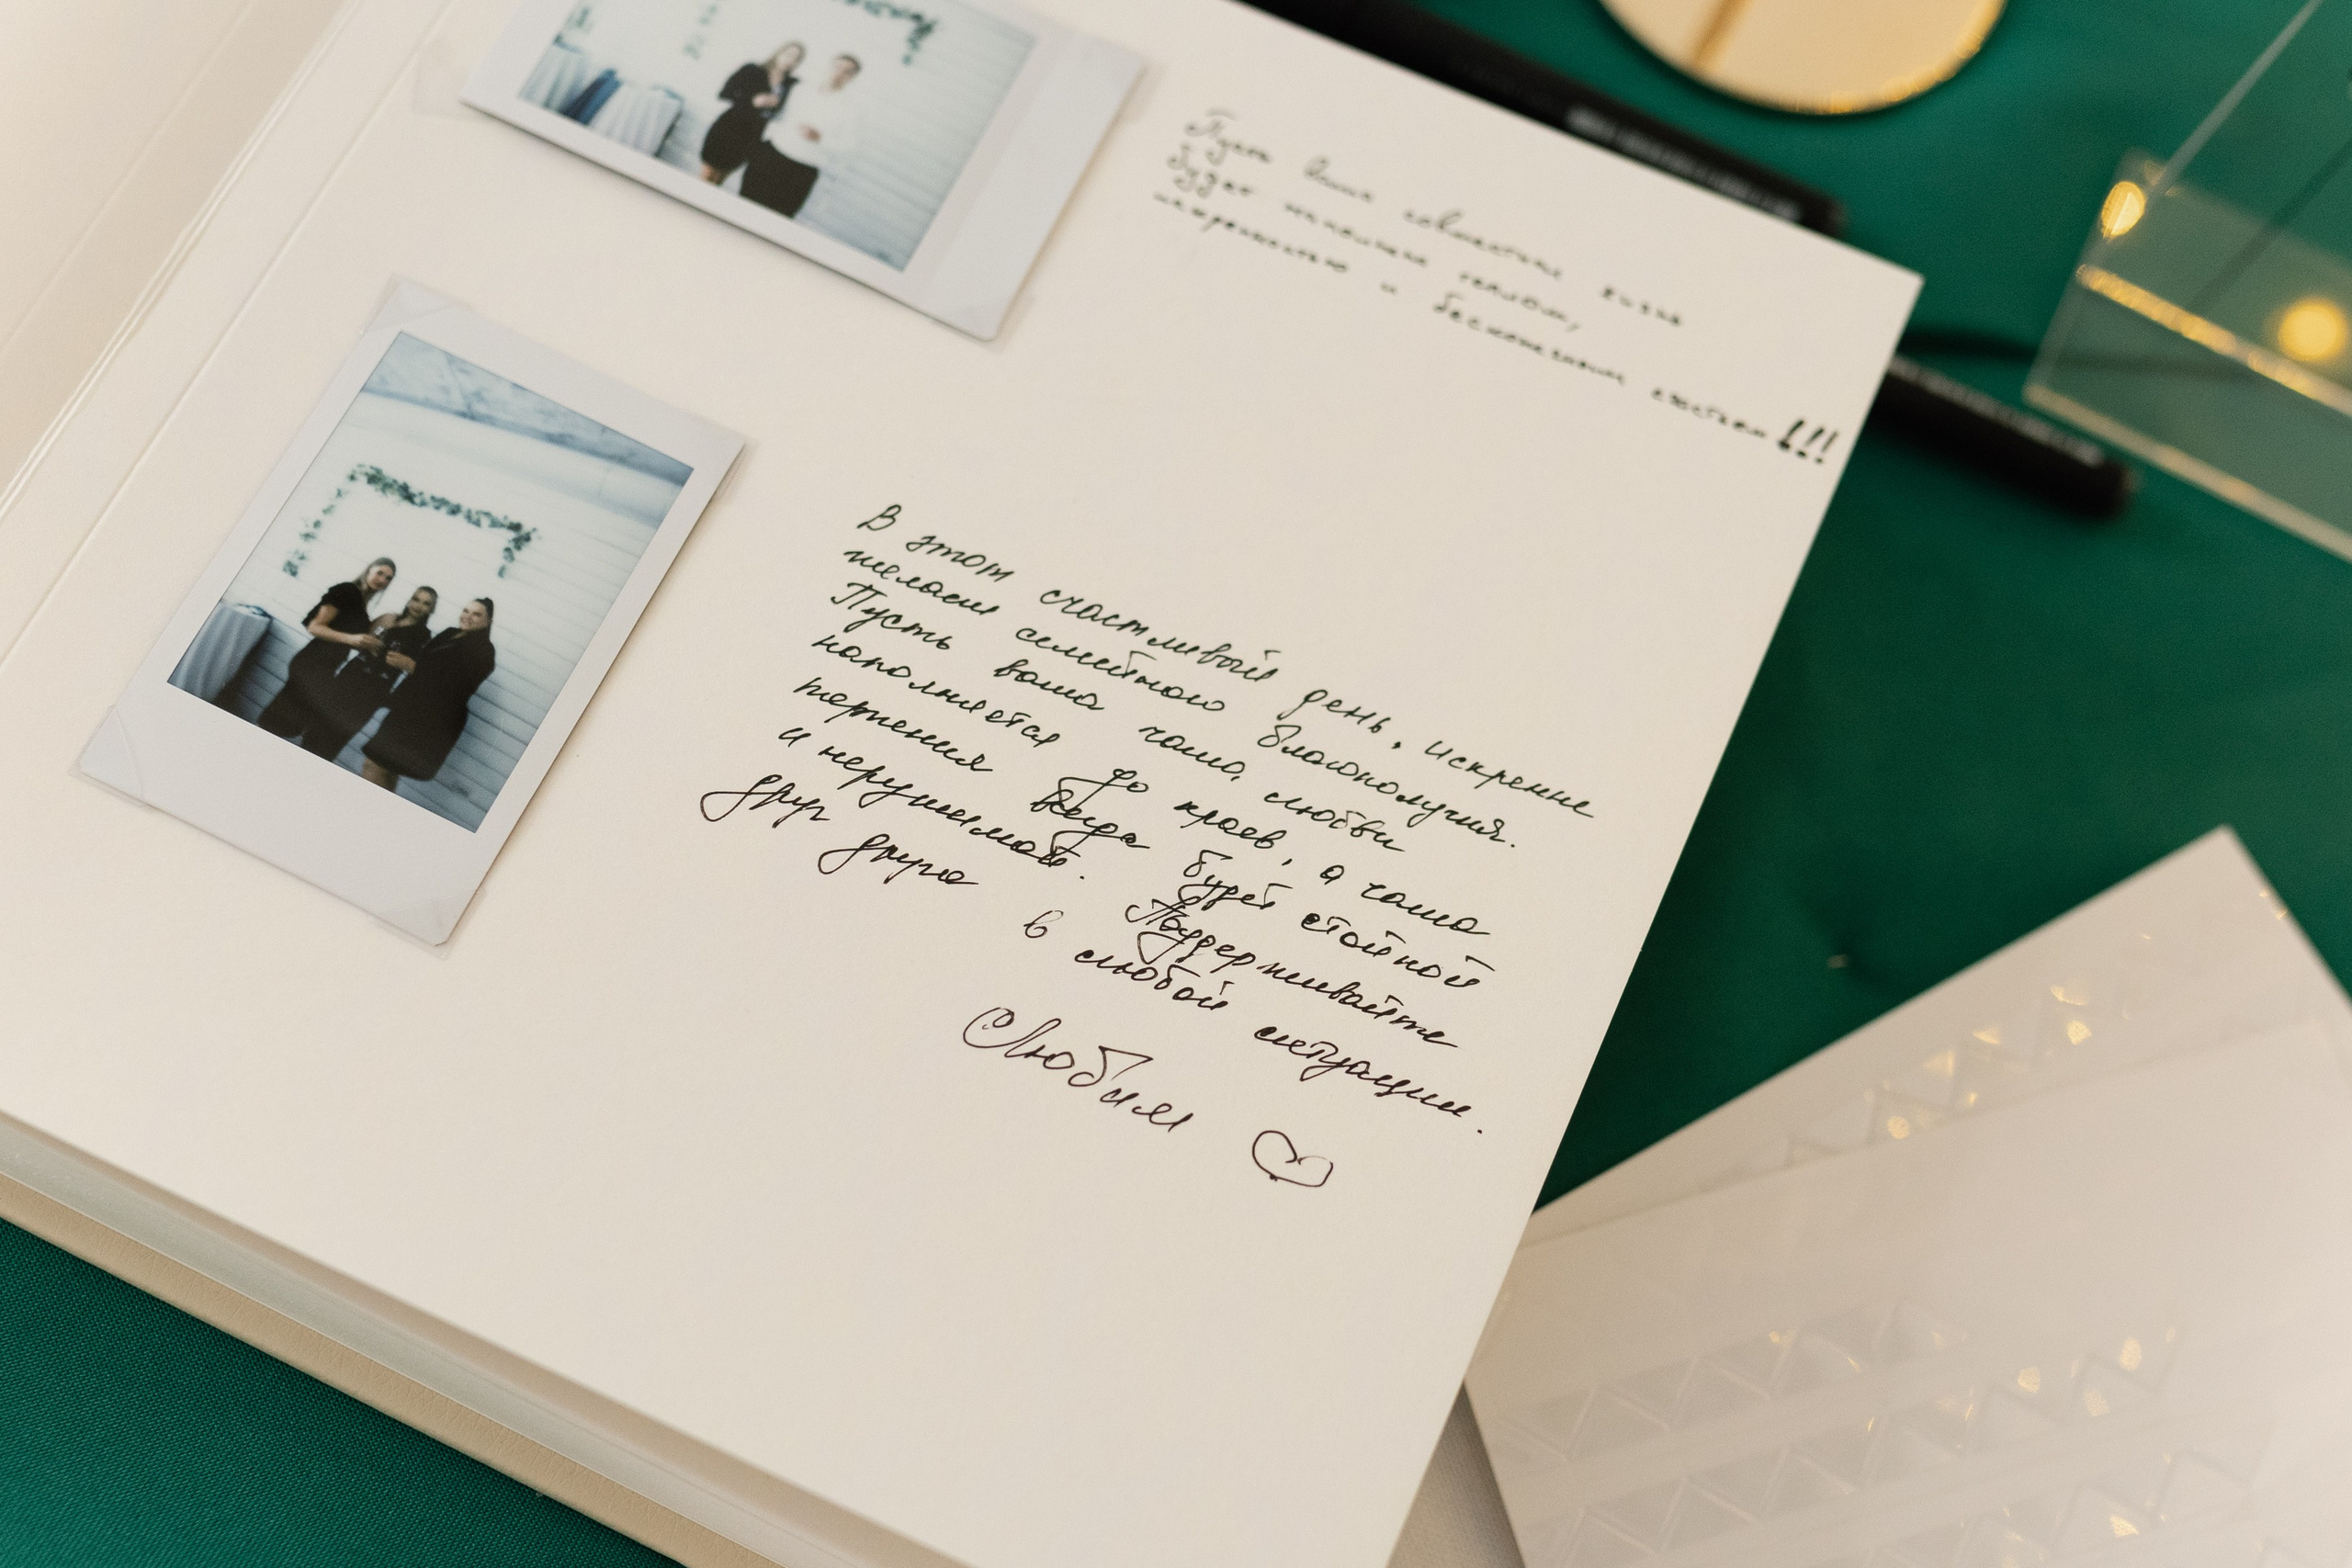 Пусть ваша совместная жизнь
будет наполнена теплом,
искренностью и бесконечным счастьем!!!
В этот счастливый день, искренне
желаем семейного благополучия.
Пусть ваша чаша, любви
наполняется до краев, а чаша
терпения всегда будет стойкой
и нерушимой. Поддерживайте
друг друга в любой ситуации.
Любим